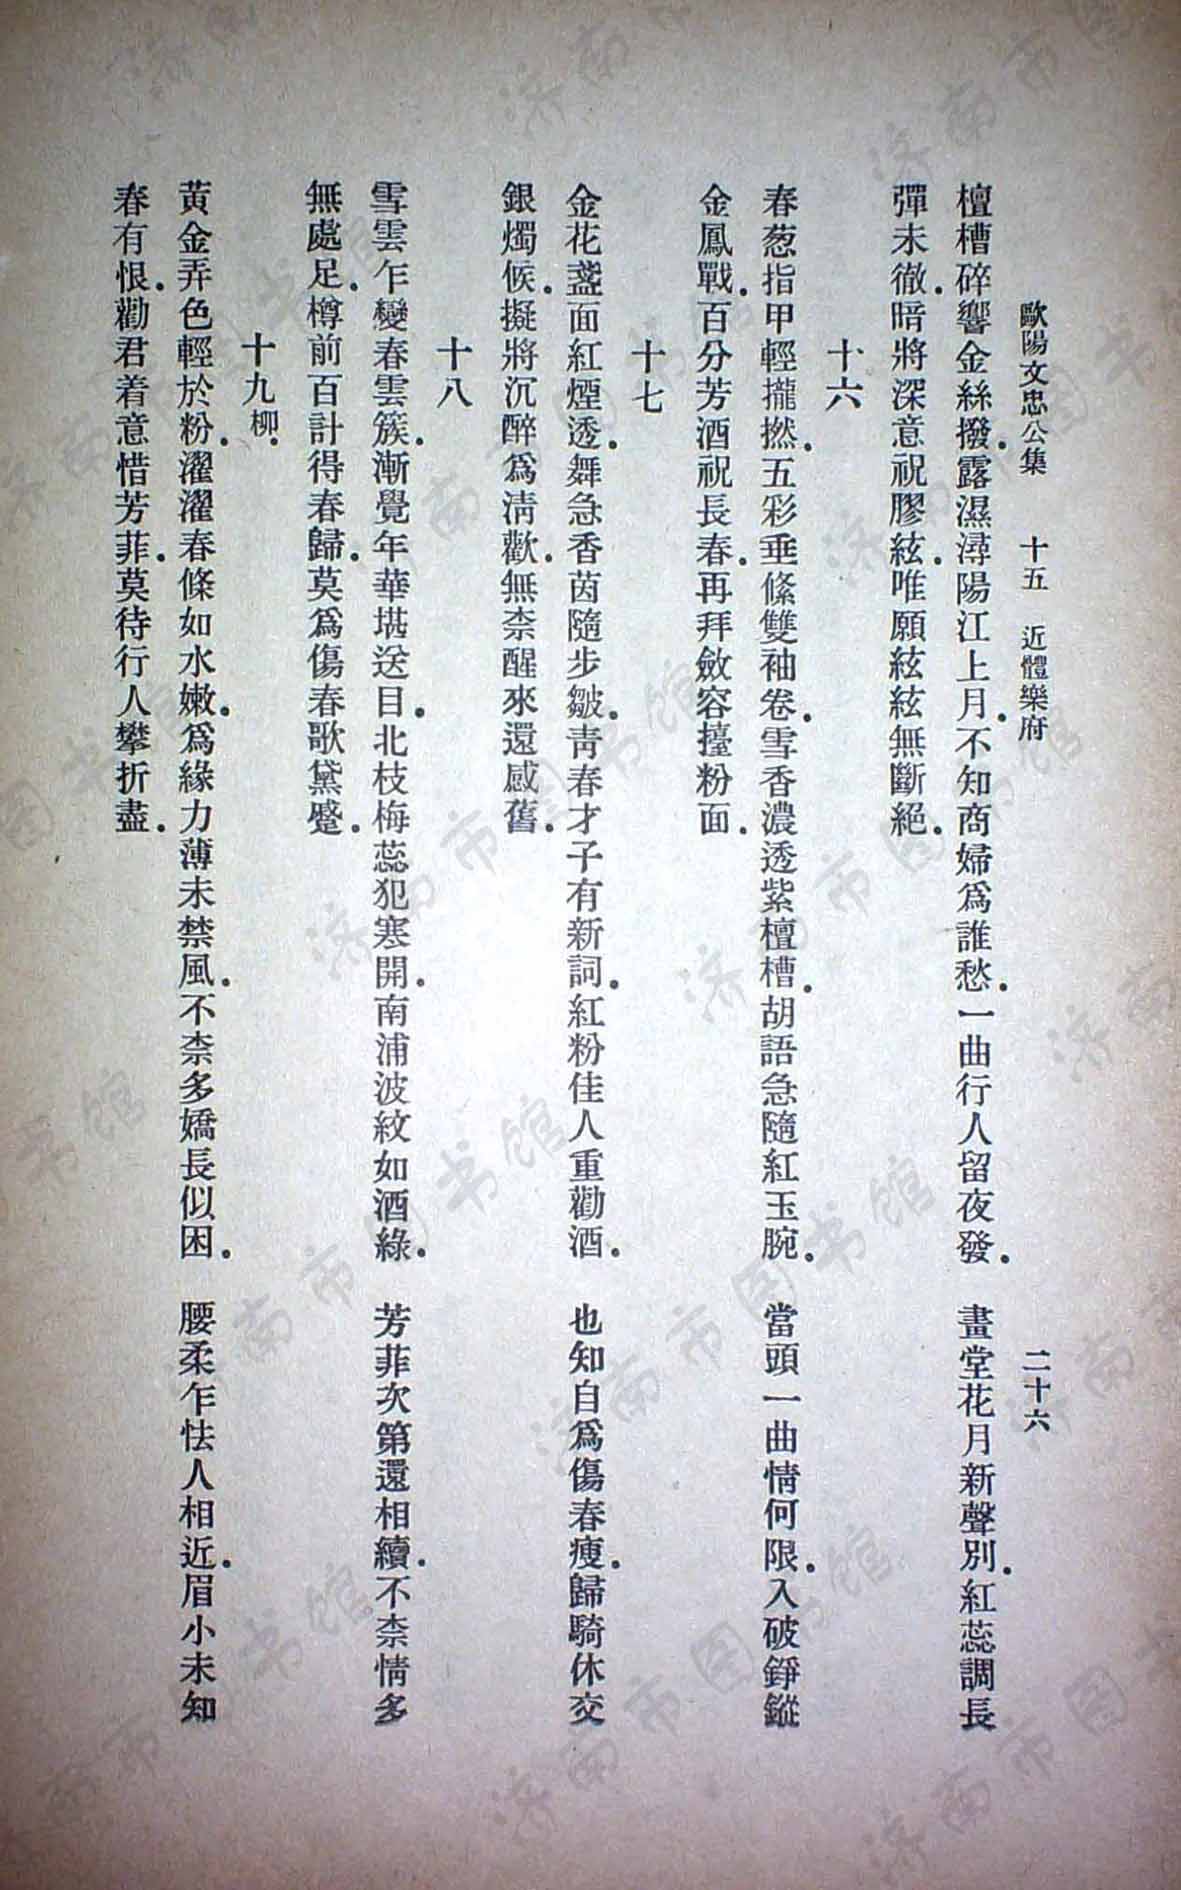 歐陽文忠公集　十五　近體樂府　二十六
檀槽碎響金絲撥．露濕潯陽江上月．不知商婦爲誰愁．一曲行人留夜發．　畫堂花月新聲別．紅蕊調長
彈未徹．暗將深意祝膠絃．唯願絃絃無斷絕．
十六
春葱指甲輕攏撚．五彩垂絛雙袖卷．雪香濃透紫檀槽．胡語急隨紅玉腕．　當頭一曲情何限．入破錚鏦
金鳳戰．百分芳酒祝長春．再拜斂容擡粉面．
十七
金花盞面紅煙透．舞急香茵隨步皺．青春才子有新詞．紅粉佳人重勸酒．　也知自爲傷春瘦．歸騎休交
銀燭候．擬將沉醉爲淸歡．無柰醒來還感舊．
十八
雪雲乍變春雲簇．漸覺年華堪送目．北枝梅蕊犯寒開．南浦波紋如酒綠．　芳菲次第還相續．不柰情多
無處足．樽前百計得春歸．莫爲傷春歌黛蹙．
十九柳．
黃金弄色輕於粉．濯濯春條如水嫩．爲緣力薄未禁風．不柰多嬌長似困．　腰柔乍怯人相近．眉小未知
春有恨．勸君着意惜芳菲．莫待行人攀折盡．
济南市图书馆